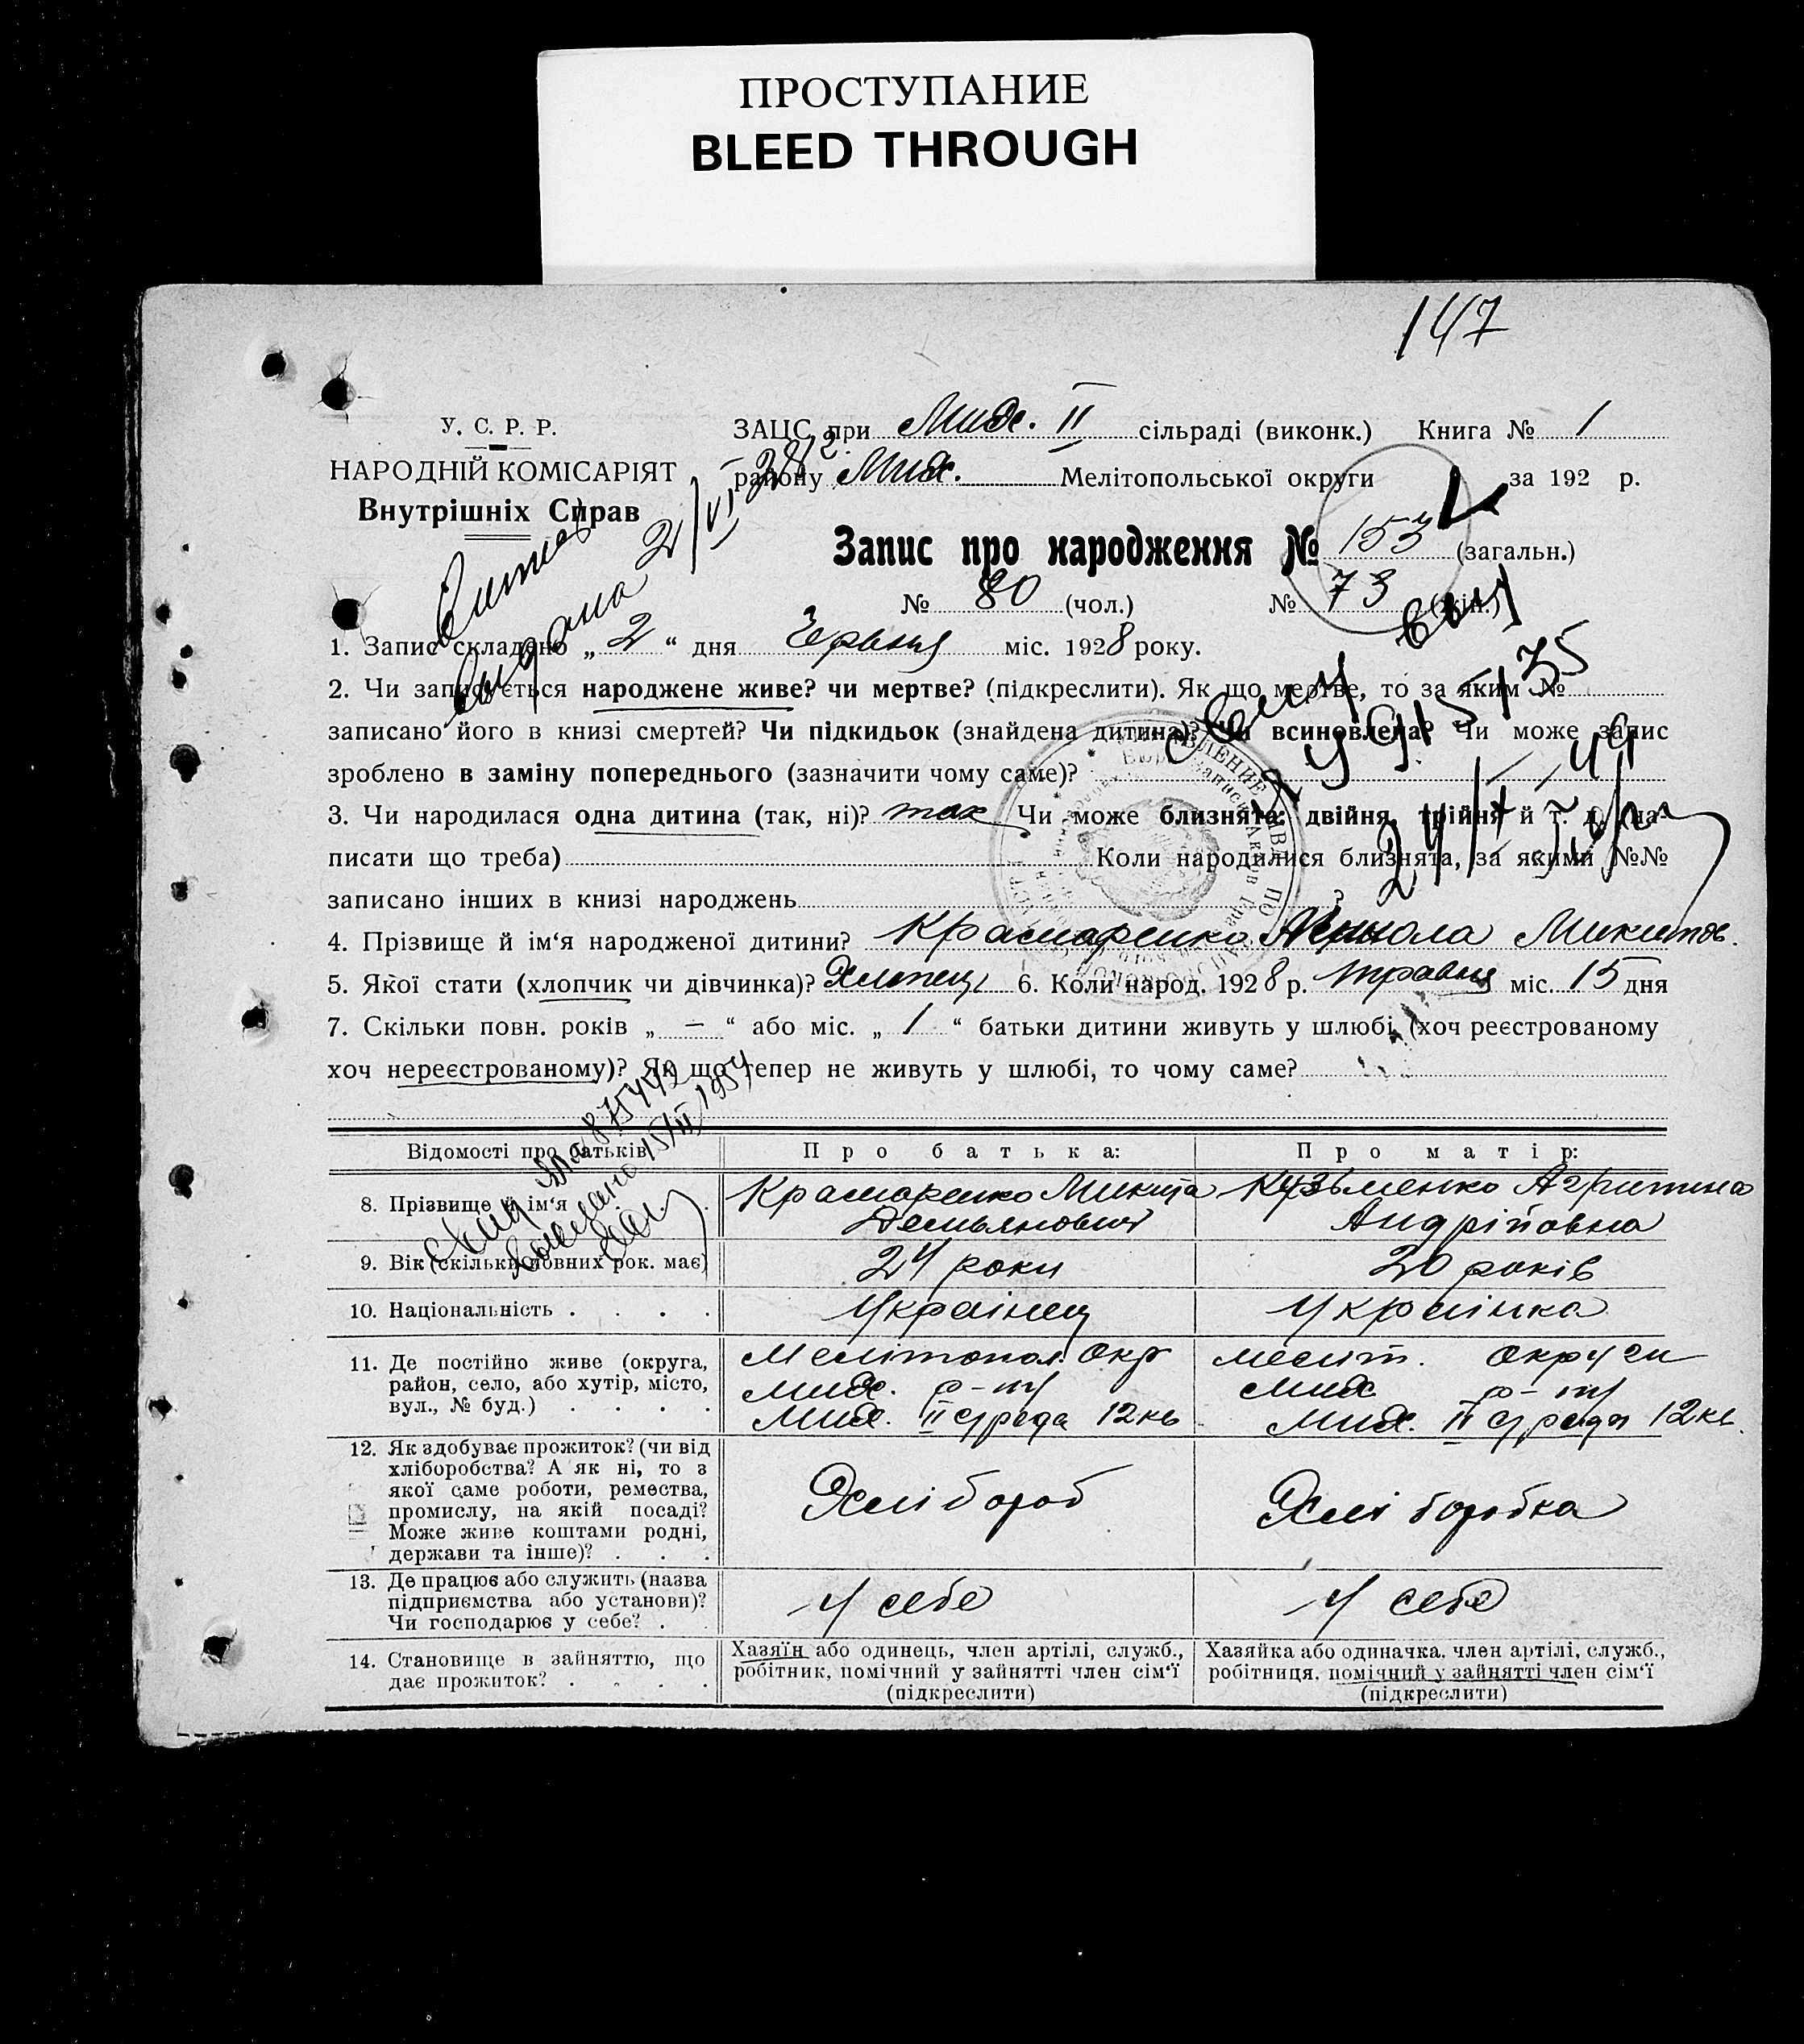 ПРОСТУПАНИЕ
BLEED THROUGH
147
У. С. Р. Р.
НАРОДНІЙ КОМІСАРІЯТ
Внутрішніх Справ
ЗАЦС при Мих. II сільраді (виконк.) Книга № 1
району Мих. Мелітопольської округи за 192 р.
Запис про народження № 153 (загальн.)
№ 80 (чол.) № 73 (жін.)
Витяг
видана 2/VI 28 р.
1. Запис складено „ 2 “ дня Червня міс. 1928 року.
2. Чи записується народжене живе? чи мертве? (підкреслити). Як що мертве, то за яким №
записано його в книзі смертей? Чи підкидьок (знайдена дитина)? Чи всиновлена? Чи може запис
зроблено в заміну попереднього (зазначити чому саме)?
3. Чи народилася одна дитина (так, ні)? так Чи може близнята: двійня, трійня й т. д. (на-
писати що треба) Коли народилися близнята, за якими №№
записано інших в книзі народжень ?
4. Прізвище й ім‘я народженої дитини? Крамаренко Микитов.
5. Якої стати (хлопчик чи дівчинка)? Хлопець 6. Коли народ. 1928 р. травня міс. 15 дня
7. Скільки повн. років „ — “ або міс. „ 1 “ батьки дитини живуть у шлюбі (хоч реєстрованому
хоч нереєстрованому)? Як що тепер не живуть у шлюбі, то чому саме?
Відомості про батьків
Про батька:
Про матір:
8. Прізвище й ім‘я
Крамаренко Микита
Демьянович
Кузьменко Агрипина
Андріівна
9. Вік (скільки повних рок. має)
24 роки
20 років
10. Національність . . . .
Українець
Українка
11. Де постійно живе (округа,
район, село, або хутір, місто,
вул., № буд.) . . . .
Мелітопол. Окр
Мих. р-ну
Мих. II с/рада 12 кв
Меліт. Округи
Мих р-ну
Мих. II с/рада 12 кв.
12. Як здобуває прожиток? (чи від
хліборобства? А як ні, то з
якої саме роботи, ремества,
промислу, на якій посаді?
Може живе коштами родні,
держави та інше)? . . .
Хлібороб
Хліборобка
13. Де працює або служить (назва
підприємства або установи)?
Чи господарює у себе? . .
У себе
У себе
14. Становище в зайняттю, що
дає прожиток? . . . .
Хазяїн або одинець, член артілі, служб.,
робітник, помічний у зайнятті член сім‘ї
(підкреслити)
Хазяйка або одиначка, член артілі, служб.,
робітниця, помічний у зайнятті член сім‘ї
(підкреслити)